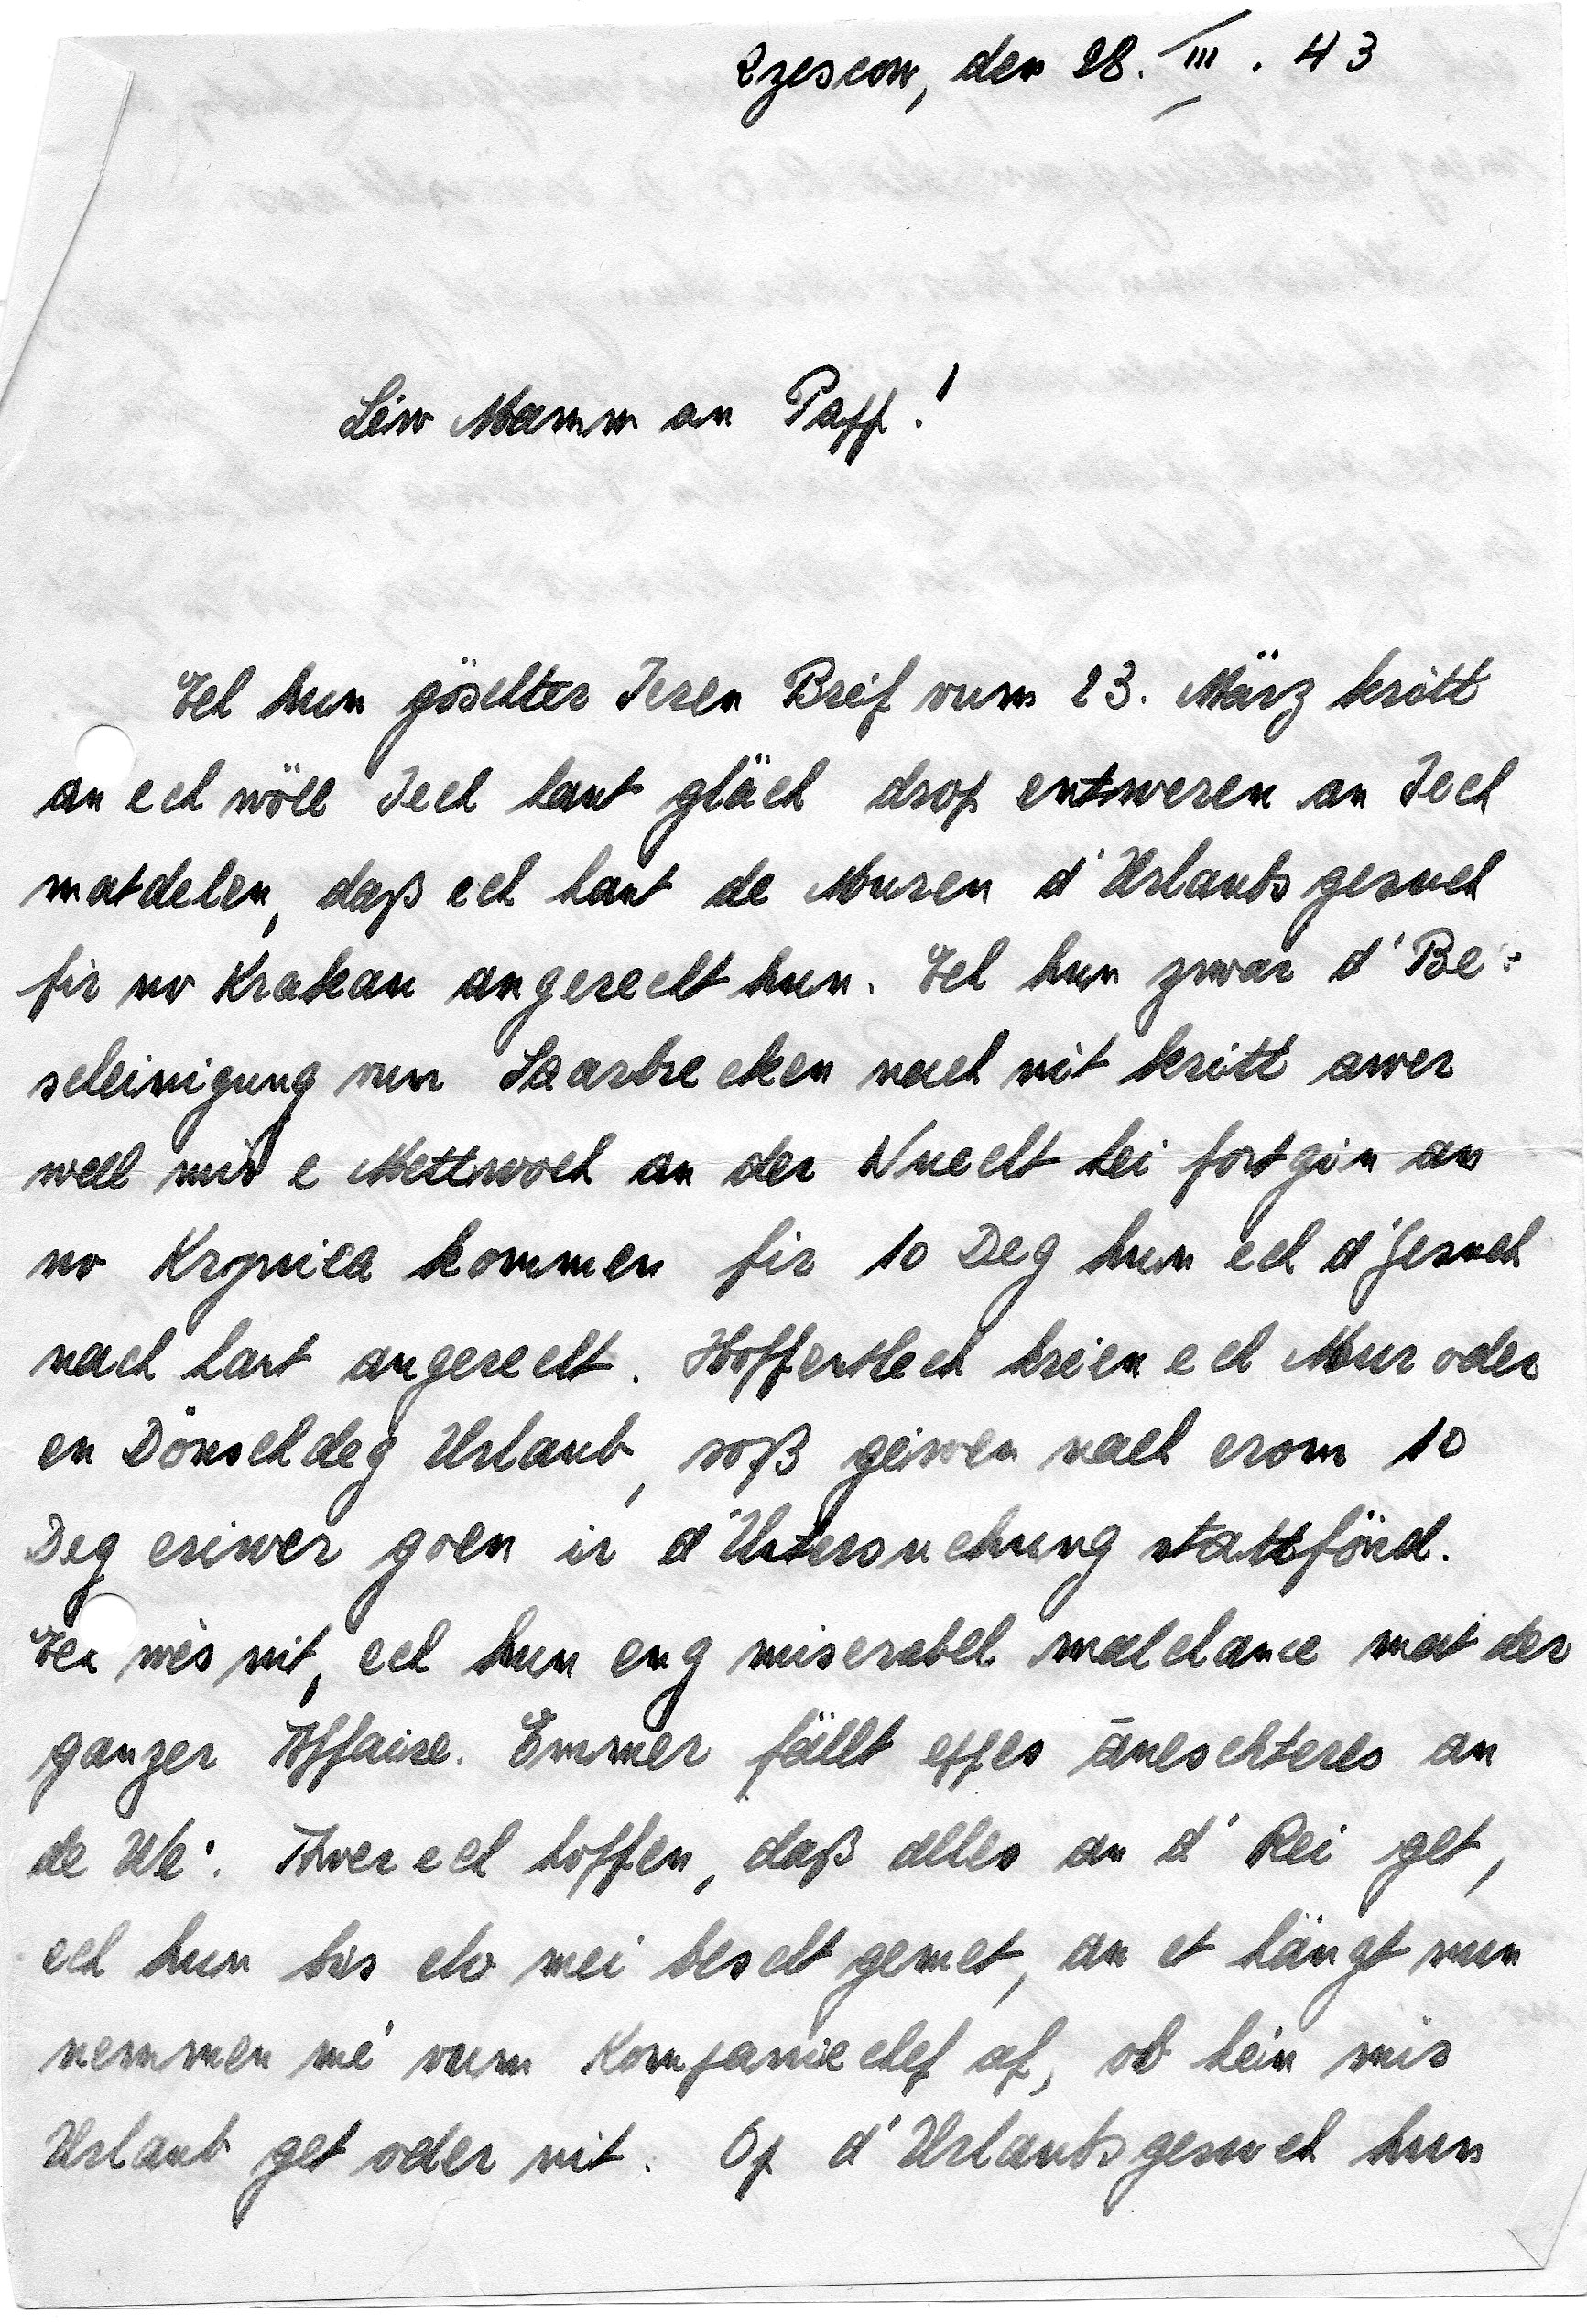 Rzescow, den 28. III. 43
Léiw Mamm an Papp!
Ech hun göschter Ieren Bréif vum 23. März kritt
an ech wöll Iech haut gläch drop entweren an Iech
matdelen, daß ech haut de Muren d'Urlaubsgesuch
fir no Krakau angerecht hun. Ech hun zwar d'Be-
scheinigung vun Saarbrecken nach nit kritt awer
well mir e Mettwoch an der Nuecht hei fort gin an
no Krynica kommen fir 10 Deg hun ech d'Gesuch
nach haut angerecht. Hoffentlech kréien ech Mur oder
en Dönschdeg Urlaub, soß géiwen nach erom 10
Deg eriwer goen ir d'Untersuchung stattfönd.
Ech wés nit, ech hun eng miserabel malchance mat der
ganzer Affaire. Emmer fällt eppes äneschteres an
de Wé. Awer ech hoffen, daß alles an d'Rei get,
ech hun bis elo mei bescht gemet, an et hängt nun
nemmen mé vum Kompaniechef af, ob héin mir
Urlaub get oder nit. Op d'Urlaubsgesuch hun